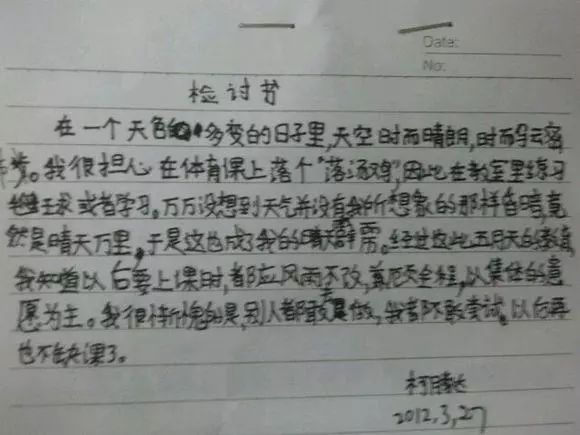 Date:
No:
检讨书
在一个天色多变的日子里,天空时而晴朗,时而乌云密
布。我很担心在体育课上落个“落汤鸡”,因此在教室里练习
球或者学习。万万没想到天气并没有我所想象的那样昏暗,竟
然是晴天万里,于是这也成了我的晴天霹雳。经过这此五月天的教育,
我知道以后要上课时,都应风雨不改,顶天全程,以集体的意
愿为主。我很惭愧的是,别人都敢做,我都不敢尝试。以后再
也不缺课了。
柯腾达
2012,3,27